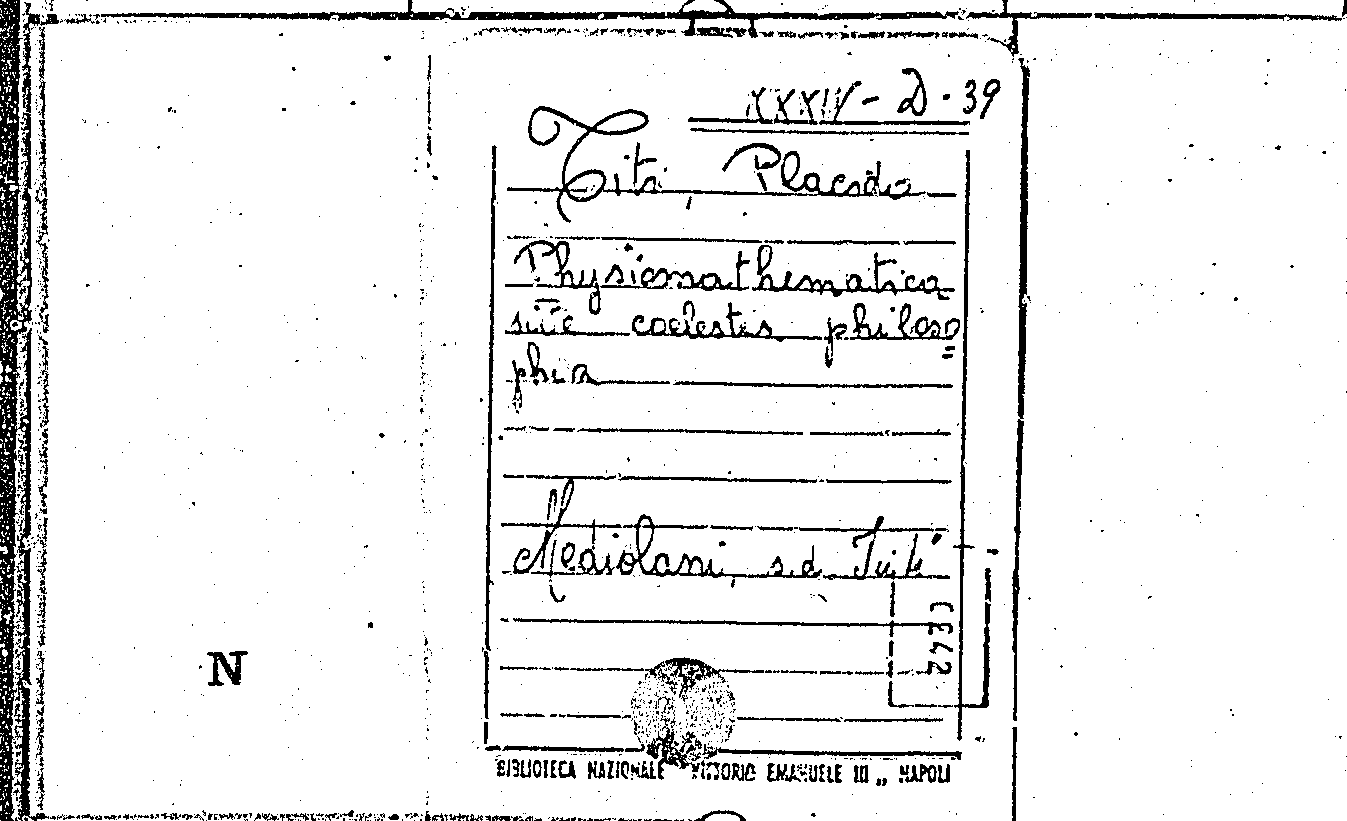 XXXIV - D. 39
Titi, Placido
Physicomathematica
sive coelestis philoso=
phia
Mediolani, s.d.
N
BIBLIOTECA NAZIONALE VITTORIO EMANUELE III „ NAPOLI